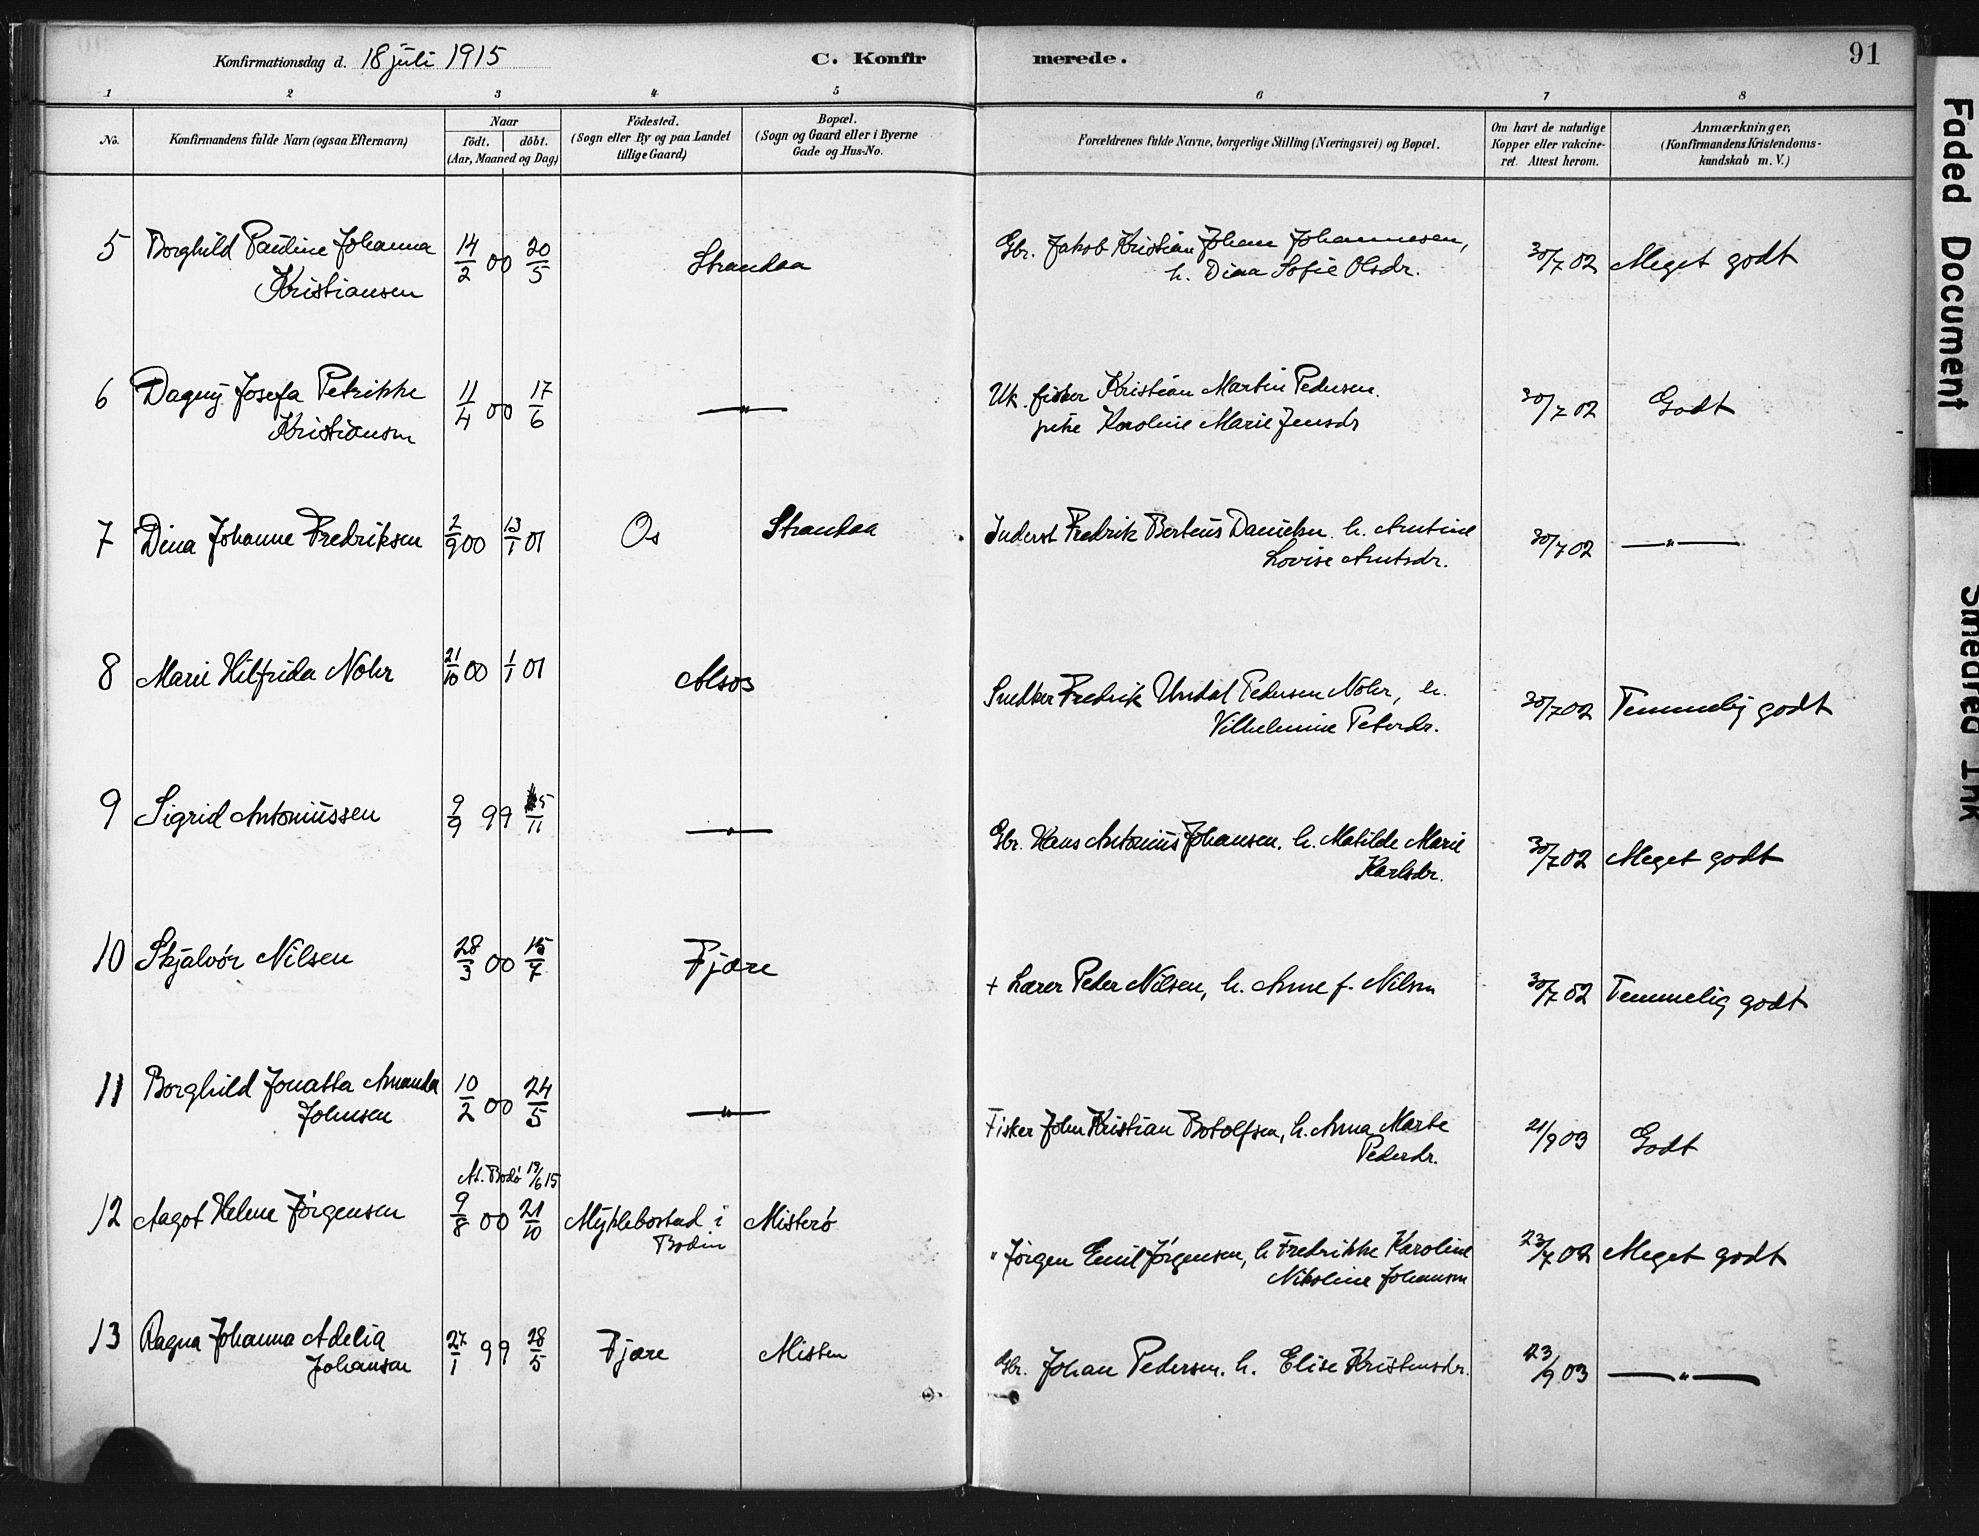 Konfirmationsdag d. 18 juli 1915
C. Konfirmerede.
91
1 2 3 4 5 6 7 8
No.
Konfirmandens fulde Navn (ogsaa Efternavn)
Naar
født. døbt.
(Aar, Maaned og Dag)
Fødested.
(Sogn eller By og paa Landet
tillige Gaard)
Bopæl.
(Sogn og Gaard eller i Byerne
Gade og Hus-No.
Forældrenes fulde Navne, borgerlige Stilling (Næringsvei) og Bopæl.
Om havt de naturlige
Kopper eller vakcine-
ret. Attest herom.
Anmærkninger,
(Konfirmandens Kristendoms-
kundskab m. V.)
5 Borghild Pauline Johanna 14/2 00 20/5 Strandaa Gbr. Jakob Kristian Johan Johannesen, 30/7 02 Meget godt
Kristiansen h. Dina Sofie Olsdr.
6 Dagny Josefa Petrikke 11/4 00 17/6 —"— Uk. fisker Kristian Martin Pedersen. 30/7 02 Godt
Kristiansen pike Karoline Marie Jensdr
7 Dina Johanne Fredriksen 2/9 00 13/1 01 Os Strandaa Inderst Fredrik Berteus Danielsen h. Arntine 30/7 02 —"—
Lovise Arntsdr.
8 Marie Hilfrida Nohr 21/10 00 1/1 01 Alsos Snedker Fredrik Undal Pedersen Nohr, h. 30/7 02 Temmelig godt
Vilhelmine Petersdr.
9 Sigrid Antoniussen 9/9 99 5/11 —"— Gbr. Hans Antonius Johansen. h. Matilde Marie 30/7 02 Meget godt
Karlsdr.
10 Skjalvör Nilsen 28/3 00 15/7 Fjære + Lærer Peder Nilsen, h. Anne f. Nilsen 30/7 02 Temmelig godt
11 Borghild Jonatta Amanda 10/2 00 24/5 —"— Fisker John Kristian Botolfsen, h. Anna Marte 21/9 03 Godt
Johnsen Pedersdr.
At. Bodö 19/6 15
12 Aagot Helene Jörgensen 9/8 00 21/10 Myklebostad i Misterö " Jörgen Emil Jörgensen, h Fredrikke Karoline 23/7 02 Meget godt
Bodin Nikoline Johansen
13 Ragna Johanna Adelia 27/1 99 28/5 Fjære Misten Gbr. Johan Pedersen. h. Elise Kristensdr. 23/9 03 —"—
Johansen
Faded Document
Smeared Ink